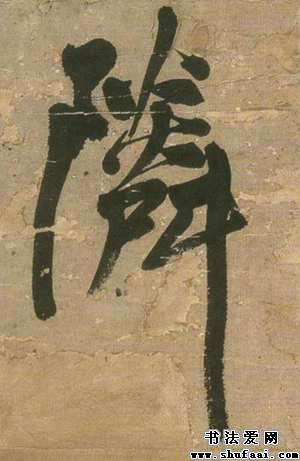 隣
书法爱网
www.shufaai.com